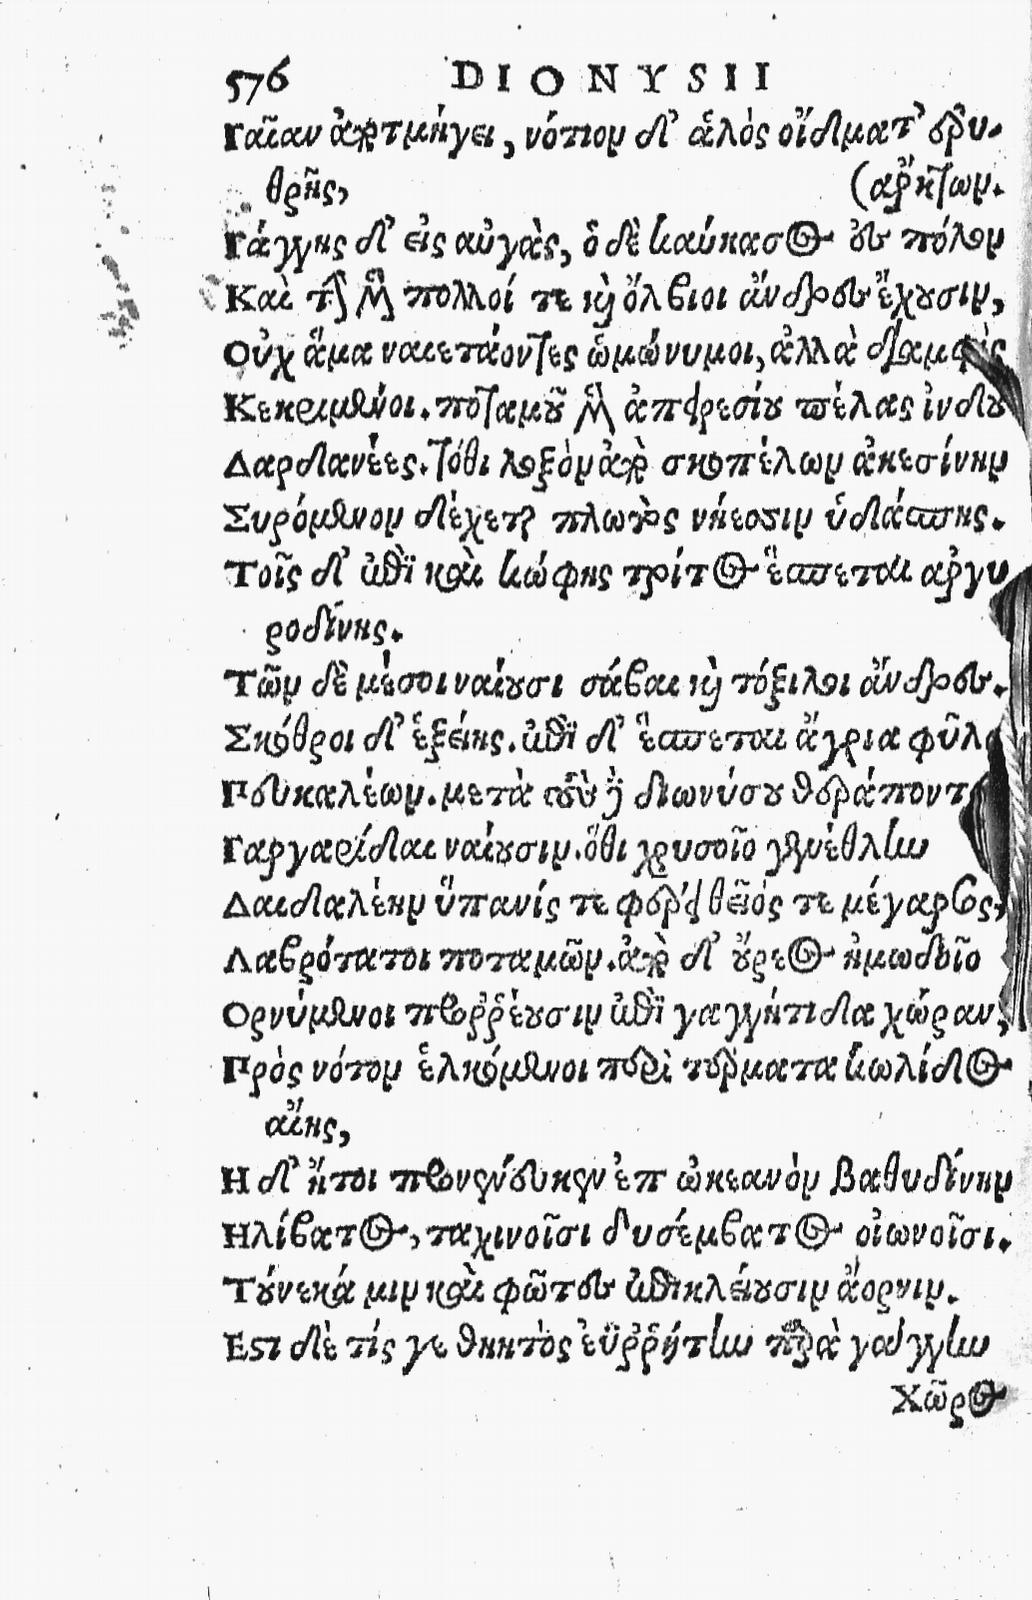 576 DIONYSII
Γαῖαν ἀποτμήγει, νότιον δ' ἁλὸς οἴδματ' ἐρυ-
θρῆς, (ἄρκτων.
Γάγγης δ' εἰς αὐγὰς, ὁ δὲ καύκασος ἐς πόλον
Καὶ τὴν μὲν πολλοί τε καὶ ὄλβιοι ἄνδρες ἔχουσιν,
Οὐχ ἅμα ναιετάοντες ὡμώνυμοι, ἀλλὰ διαμφὶς
Κεκριμένοι. ποταμοῦ μὲν ἀπειρεσίου πέλας ἰνδοῦ
Δαρδανέες. τόθι λοξὸν ἀπὸ σκοπέλων ἀκεσίνην
Συρόμενον δέχεται πλωτὸς νήεσσιν ὑδάσπης.
Τοῖς δ' ἐπὶ καὶ κώφης τρίτος ἕσπεται ἀργυ
ροδίνης.
Τῶν δὲ μέσοι ναίουσι σάβαι καὶ τόξιλοι ἄνδρες.
Σκόθροι δ' ἑξείης. ἐπὶ δ' ἕσπεται ἄγρια φῦλα
Πευκαλέων. μετὰ τοὺς δὲ διωνύσου θεράποντες
Γαργαρίδαι ναίουσιν. ὅθι χρυσοῖο γενέθλην
Δαιδαλέην ὕπανίς τε φέρει θεῖός τε μέγαρσος,
Λαβρότατοι ποταμῶν. ἀπὸ δ' οὔρεος ἠμωδοῖο
Ορνύμενοι προῤῥέουσιν ἐπὶ γαγγήτιδα χώραν,
Πρὸς νότον ἑλκόμενοι περὶ τέρματα κωλίδος
αἴης,
Η δ' ἤτοι προνένευκεν ἐπ ὠκεανὸν βαθυδίνην
Ηλίβατος, ταχινοῖσι δυσέμβατος οἰωνοῖσι.
Τούνεκά μιν καὶ φῶτες ἐπικλείουσιν ἄορνιν.
Εστι δέ τίς γε θηητὸς ἐϋῤῥήτην παρὰ γάγγην
Χῶρος